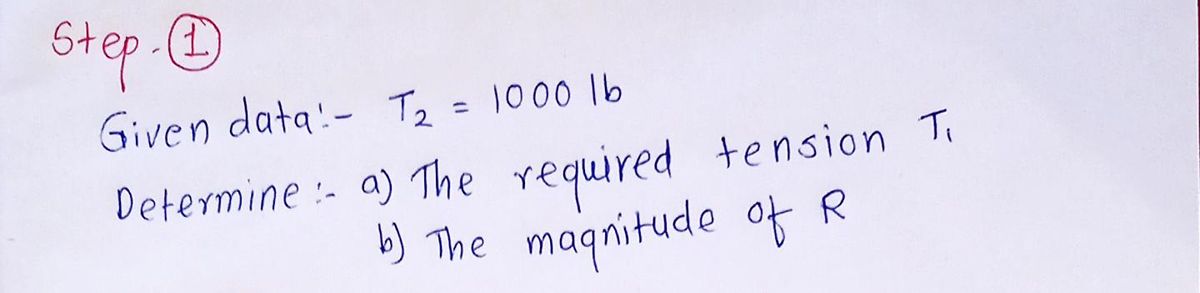 Step-①
Given data:- T₂ = 1000 lb
Determine :- a) The required tension T₁
b) The magnitude of R